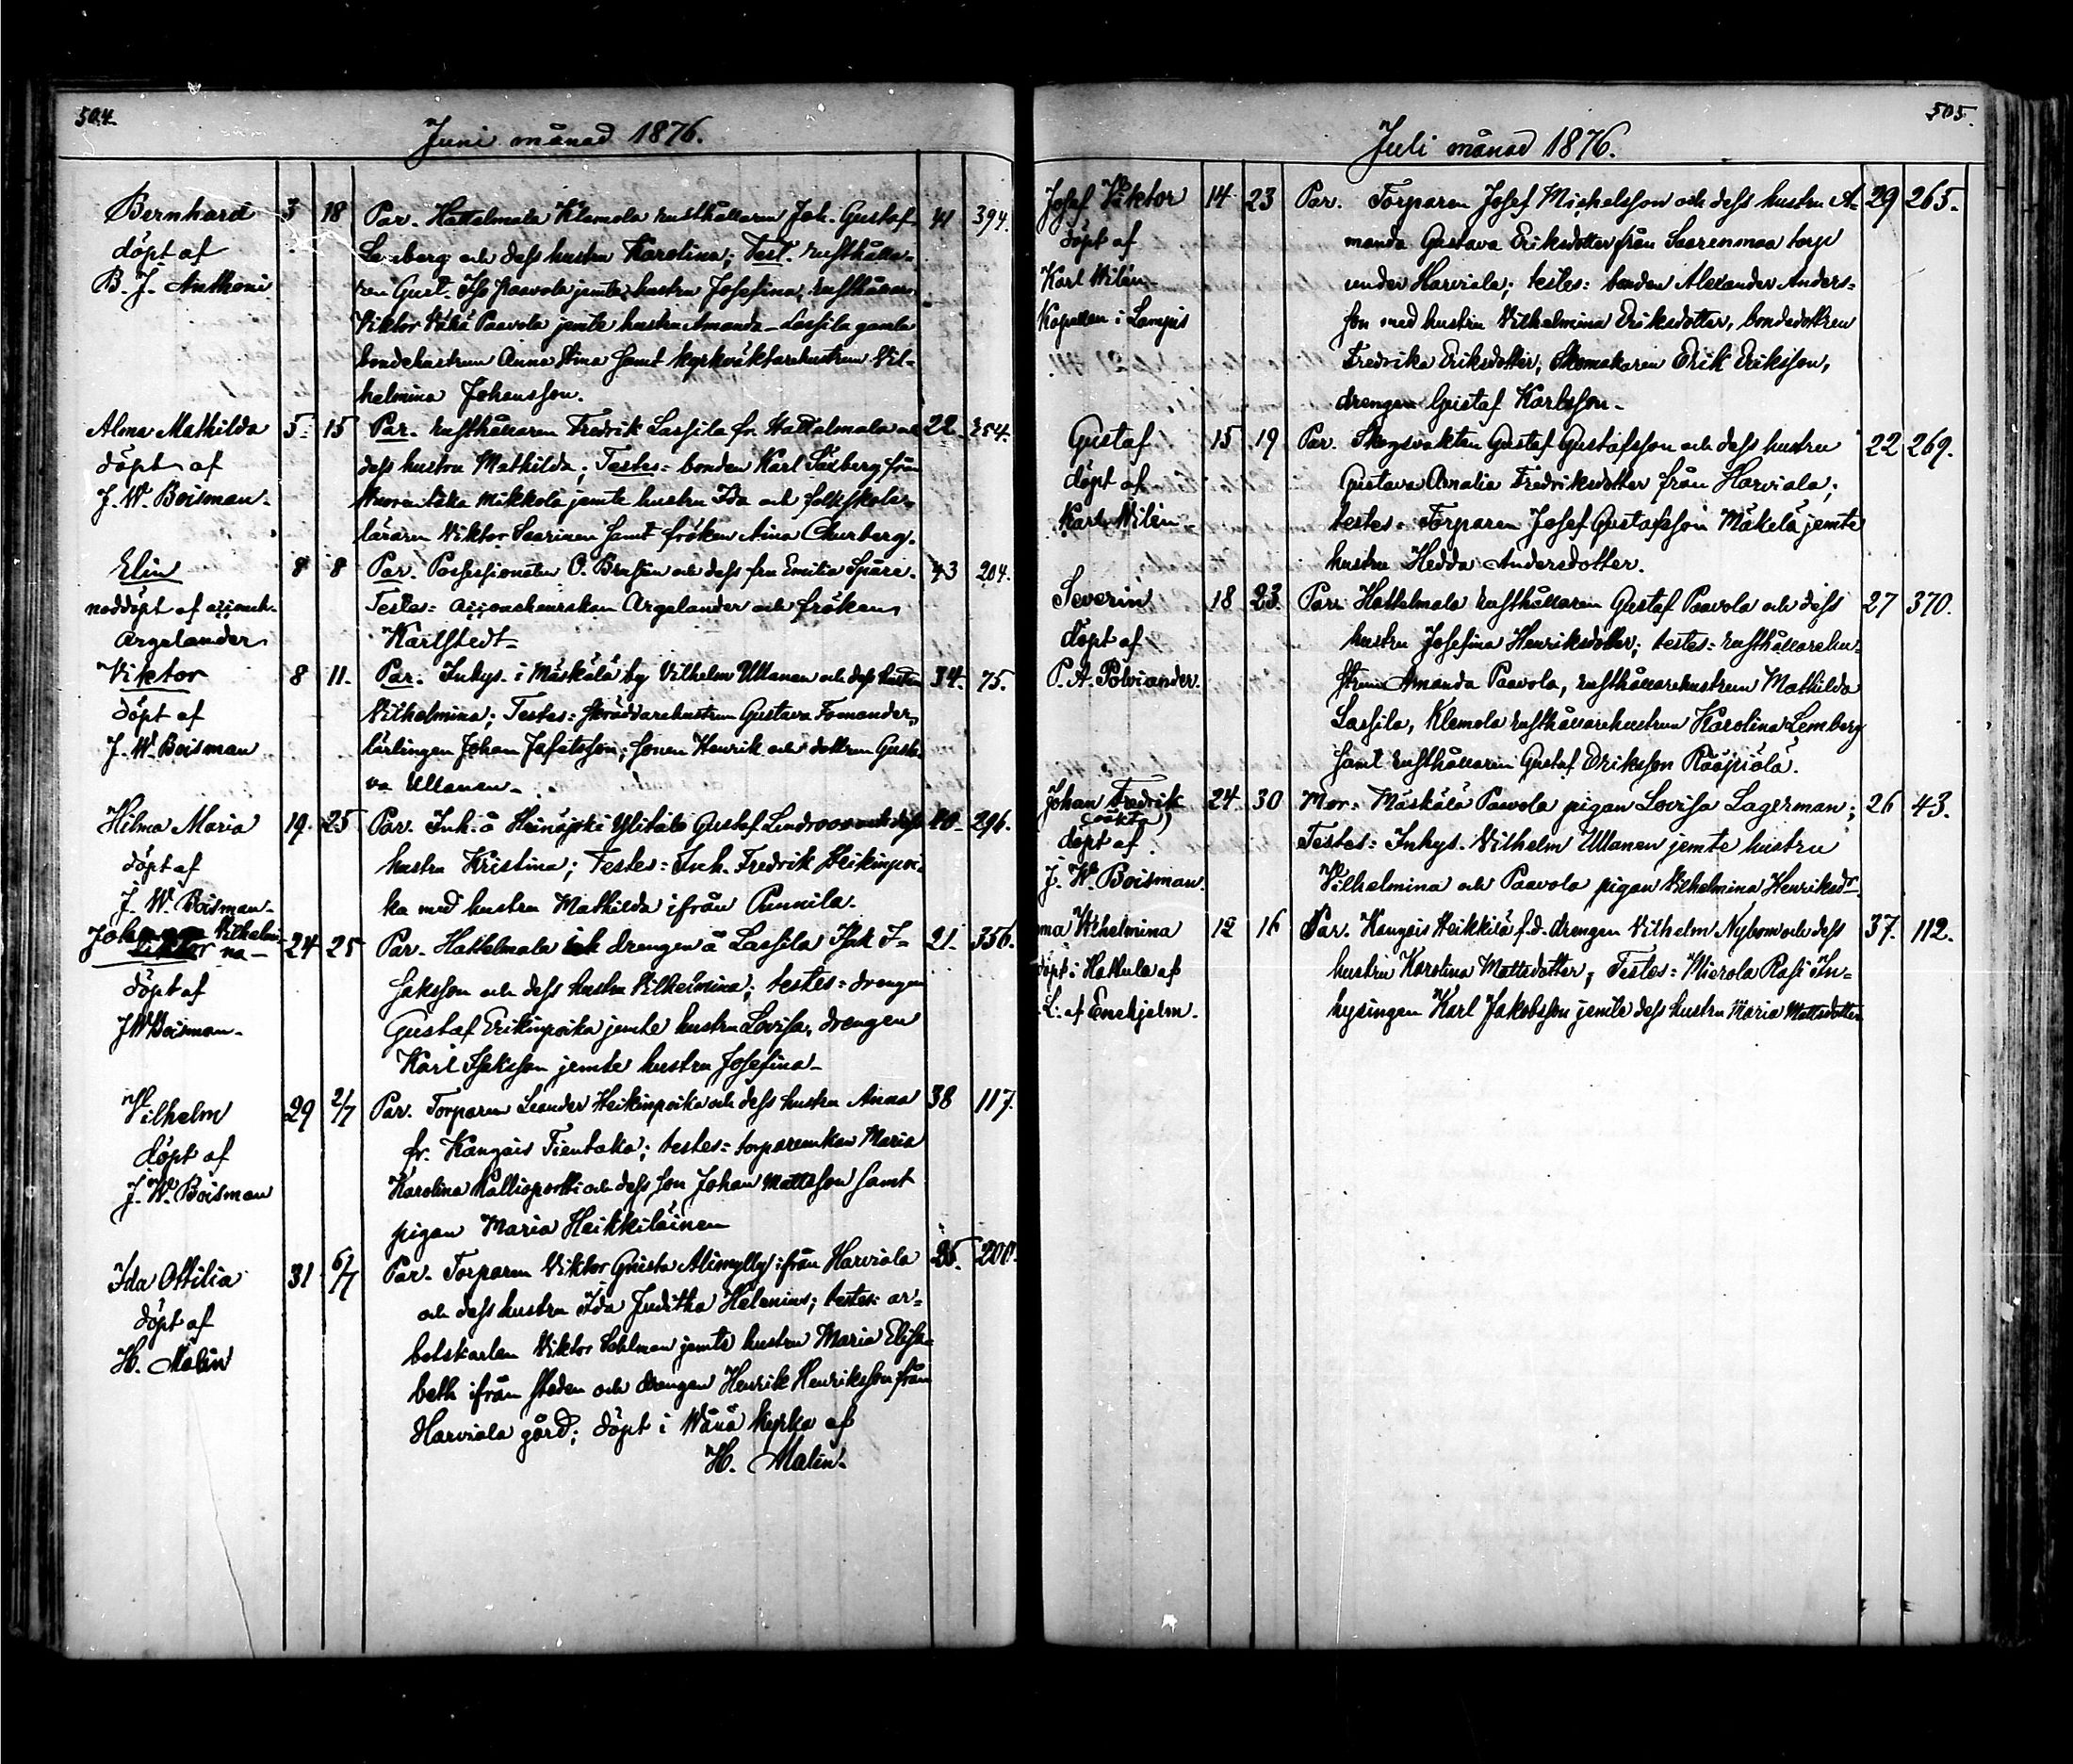 504.
Juni månad 1876.
Bernhard 3 18 Par. Hattelmala Klemola rusthållaren Joh. Gustaf 41 394.
döpt af Lemberg och dess hustru Karolina; Test. rusthålla-
B. J. Anthoni ren Gust. Iso Paavola jemte hustru Josefina, rusthållaren
Viktor Vähä Paavola jemte hustru Amanda - Lassila gamla
bondehustrun Anna Stina samt kyrkväktarehustrun Vil-
helmina Johansson.
Alma Mathilda 5. 15 Par. rusthållaren Fredrik Lassila fr. Hattelmala och 22. 354.
döpt af dess hustru Mathilda; Testes: bonden Karl Saxberg från
J. W. Boisman. Mikkola jemte hustru Ida och folkskole-
läraren Viktor Saarinen samt fröken Aina Churberg.
Elin 8 8 Par. Possessionaten O. Brusiin och dess fru Emilia Spåre. 43 204.
nöddöpt af accouch. Testes: accoucheurskan Argelander och fröken
Argelander Karlstedt -
Viktor 8 11. Par. Inhys. i Mäskälä by Vilhelm Ullanen och dess hustru 34. 75.
döpt af Vilhelmina; Testes: skräddarehustrun Gustava Fomander,
J. W. Boisman lärlingen Johan Jafetsson; sonen Henrik och dottren Gusta-
va Ullanen -
Hilma Maria 19. 25 Par. Inh. å Heinäjoki Ylitalo Gustaf Lindroos och dess 40 - 296.
döpt af hustru Kristina; Testes: Inh. Fredrik Heikinpoi-
J. W. Boisman - ka med hustru Mathilda ifrån Punnila.
Joh Vilhelmi-
na - 24 25 Par. Hattelmala drengen å Lassila Isak I- 21. 356.
döpt af saksson och dess hustru Vilhelmina; testes: drengen
J W Boisman - Gustaf Erikinpoika jemte hustru Lovisa, drengen
Karl Isaksson jemte hustru Josefina -
Vilhelm 29 2/7 Par. Torparen Leander Heikinpoika och dess hustru Anna 38 117.
döpt af fr. Kangais Tientaka; testes: torparenkan Maria
J. W. Boisman Karolina Kallioportti och dess son Johan Mattsson samt
pigan Maria Heikkiläinen
Ida Ottilia 31 6/7 Par. Torparen Viktor Gusta Alimylly ifrån Harviala 25. 200.
döpt af och dess hustru Ida Juditha Helenius; testes: ar-
H. Malin betskarlen Viktor Sohlman jemte hustru Maria Elisa-
beth ifrån staden och drengen Henrik Henriksson från
Harviala gård; döpt i Wånå kyrka af
H. Malin.
505.
Juli månad 1876.
Josef Viktor 14. 23 Par. Torparen Josef Michelsson och dess hustru A- 29 265.
döpt af manda Gustava Eriksdotter från Saarenmaa torp
Karl Wilén under Harviala; testes: bonden Alexander Anders-
Kapellan i Lampis son med hustru Vilhelmina Eriksdotter, bondedottren
Fredrika Eriksdotter, Skomakaren Erik Eriksson,
drengen Gustaf Karlsson -
Gustaf 15 19 Par. Skogsvakten Gustaf Gustafsson och dess hustru 22 269.
döpt af Gustava Amalia Fredriksdotter från Harviala;
Karl Wilén - testes: Torparen Josef Gustafsson Mäkelä jemte
hustru Hedda Andersdotter.
Severin 18 23. Par. Hattelmala rusthållaren Gustaf Paavola och dess 27 370.
döpt af hustru Josefina Henriksdotter; testes: rusthållarehu-
P. A. Polviander. strun Amanda Paavola, rusthållarehustrun Mathilda
Lassila, Klemola rusthållarehustrun Karolina Lemberg
samt rusthållaren Gustaf Eriksson Rääpiälä.
Johan Fredrik 24. 30 Mor: Mäskälä Paavola pigan Lovisa Lagerman; 26 43.
(oäkta)
döpt af Testes: Inhys. Vilhelm Ullanen jemte hustru
J. W. Boisman. Vilhelmina och Paavola pigan Vilhelmina Henriksdr -
ma Wilhelmina 12 16 Par. Kangais Heikkilä f.d. drengen Vilhelm Nybom och dess 37. 112.
döpt i Hattula af hustru Karolina Mattsdotter, Testes: Mierola Rasi In-
L. af Enehjelm. hysingen Karl Jakobsson jemte dess hustru Maria Mattsdotter